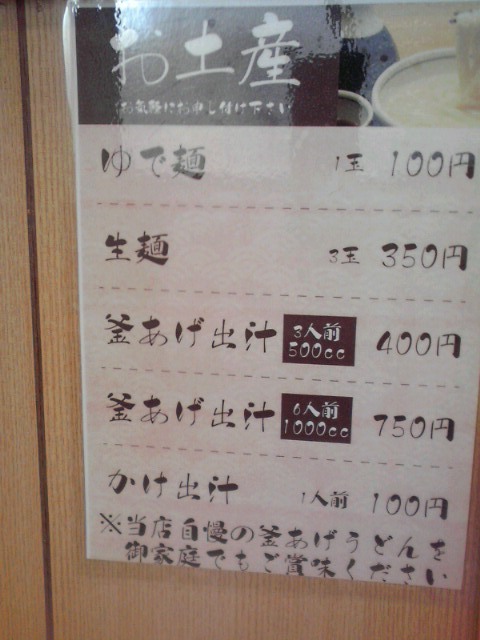 お土産
お気軽にお申し付け下さい
ゆで麺 1玉 100円
生麺 3玉 350円
釜あげ出汁 3人前 500cc 400円
釜あげ出汁 6人前 1000cc 750円
かけ出汁 1人前 100円
※当店自慢の釜あげうどんを
御家庭でもご賞味ください